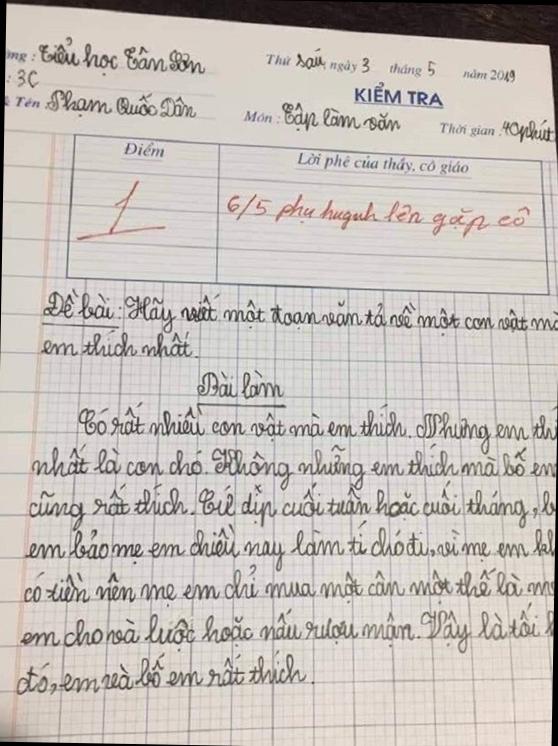 ng: Tiểu học Tân Sơn Thứ sáu, ngày 3 tháng 5 năm 2019
: 3C KIỂM TRA
Tên: Phạm Quốc Dân Môn: Tập làm văn Thời gian: 40 phút
Điểm Lời phê của thầy, cô giáo
1 6/5 phụ huynh lên gặp cô
Đề bài: Hãy viết một đoạn văn tả về một con vật mà
em thích nhất.
Bài làm
Có rất nhiều con vật mà em thích. Nhưng em th
nhất là con chó. Không những em thích mà bố em
cũng rất thích. Cứ dịp cuối tuần hoặc cuối tháng, b
em bảo mẹ em chiều nay làm tí chó đi, vì mẹ em kh
có tiền nên mẹ em chỉ mua một cân một thế là m
em cho và luộc hoặc nấu rượu mận. Vậy là tối
đó, em và bố em rất thích.